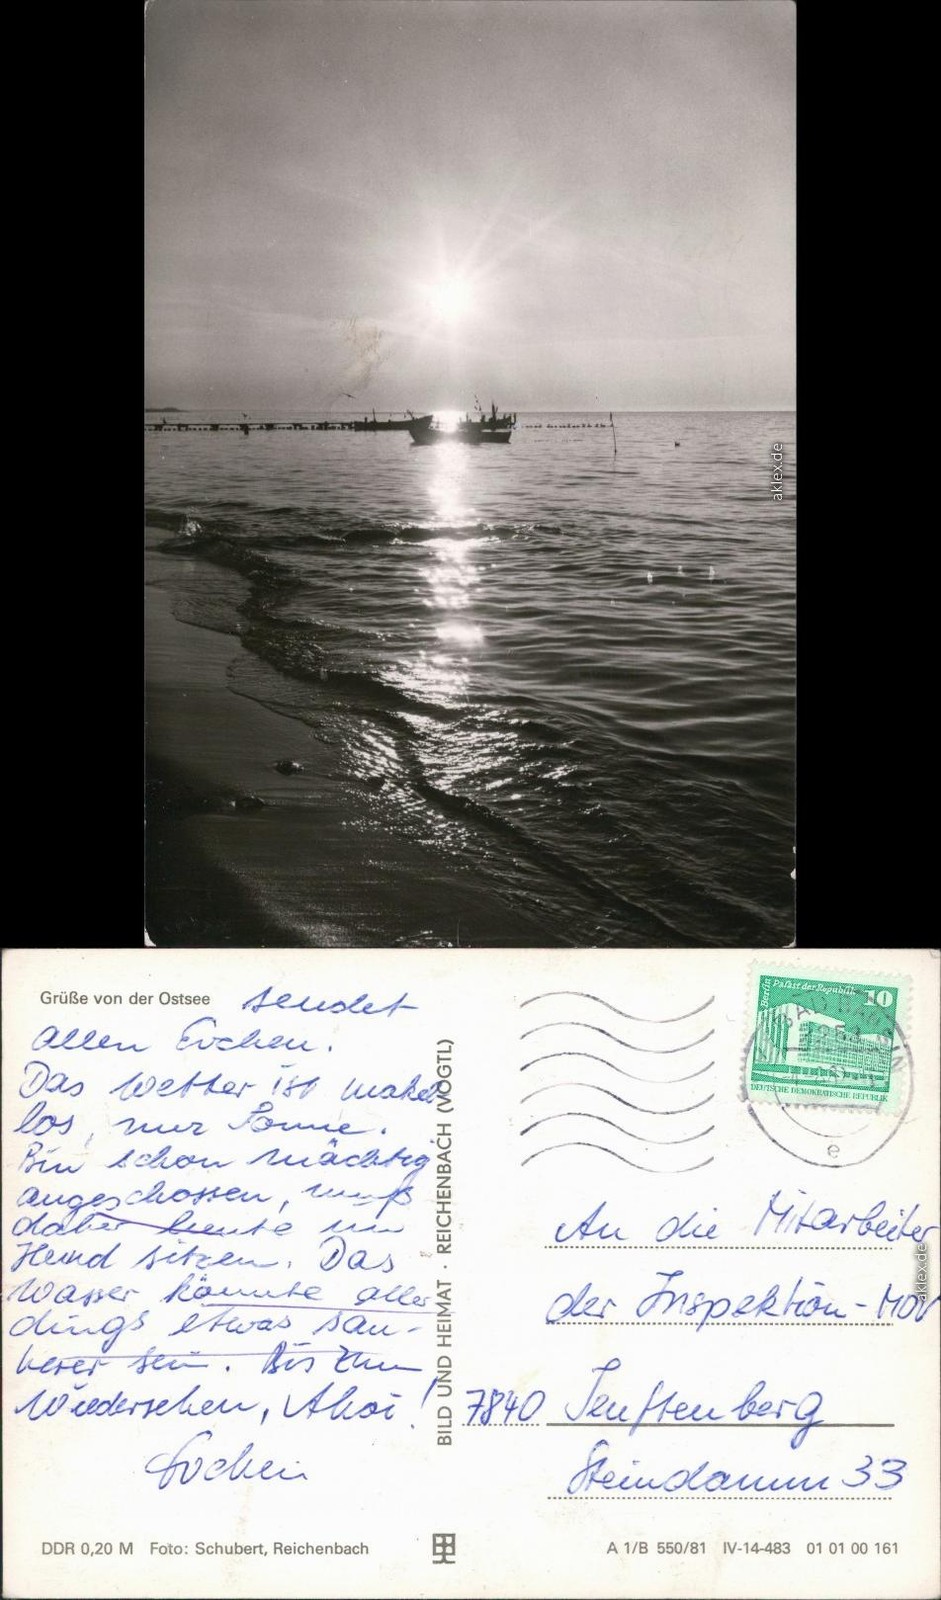 aklex.de
Grüße von der Ostsee sendet
allen Jochen.
Das Wetter ist makel
los, nur Sonne.
Bin schon mächtig
angeschossen, muß
daher heute im
Hemd sitzen. Das
Wasser könnte aller
dings etwas sau-
berer sein. Bis zum
Wiedersehen, Ahoi!
Jochen
BILD UND HEIMAT · REICHENBACH (VOGTL)
Berlin Palast der Republik 10
DEUTSCHE DEMOKRATISCHE REPUBLIK
e
An die Mitarbeiter
der Inspektion-
7840 Senftenberg
Steindamm 33
aklex.de
DDR 0,20 M Foto: Schubert, Reichenbach
A 1/B 550/81 IV-14-483 01 01 00 161